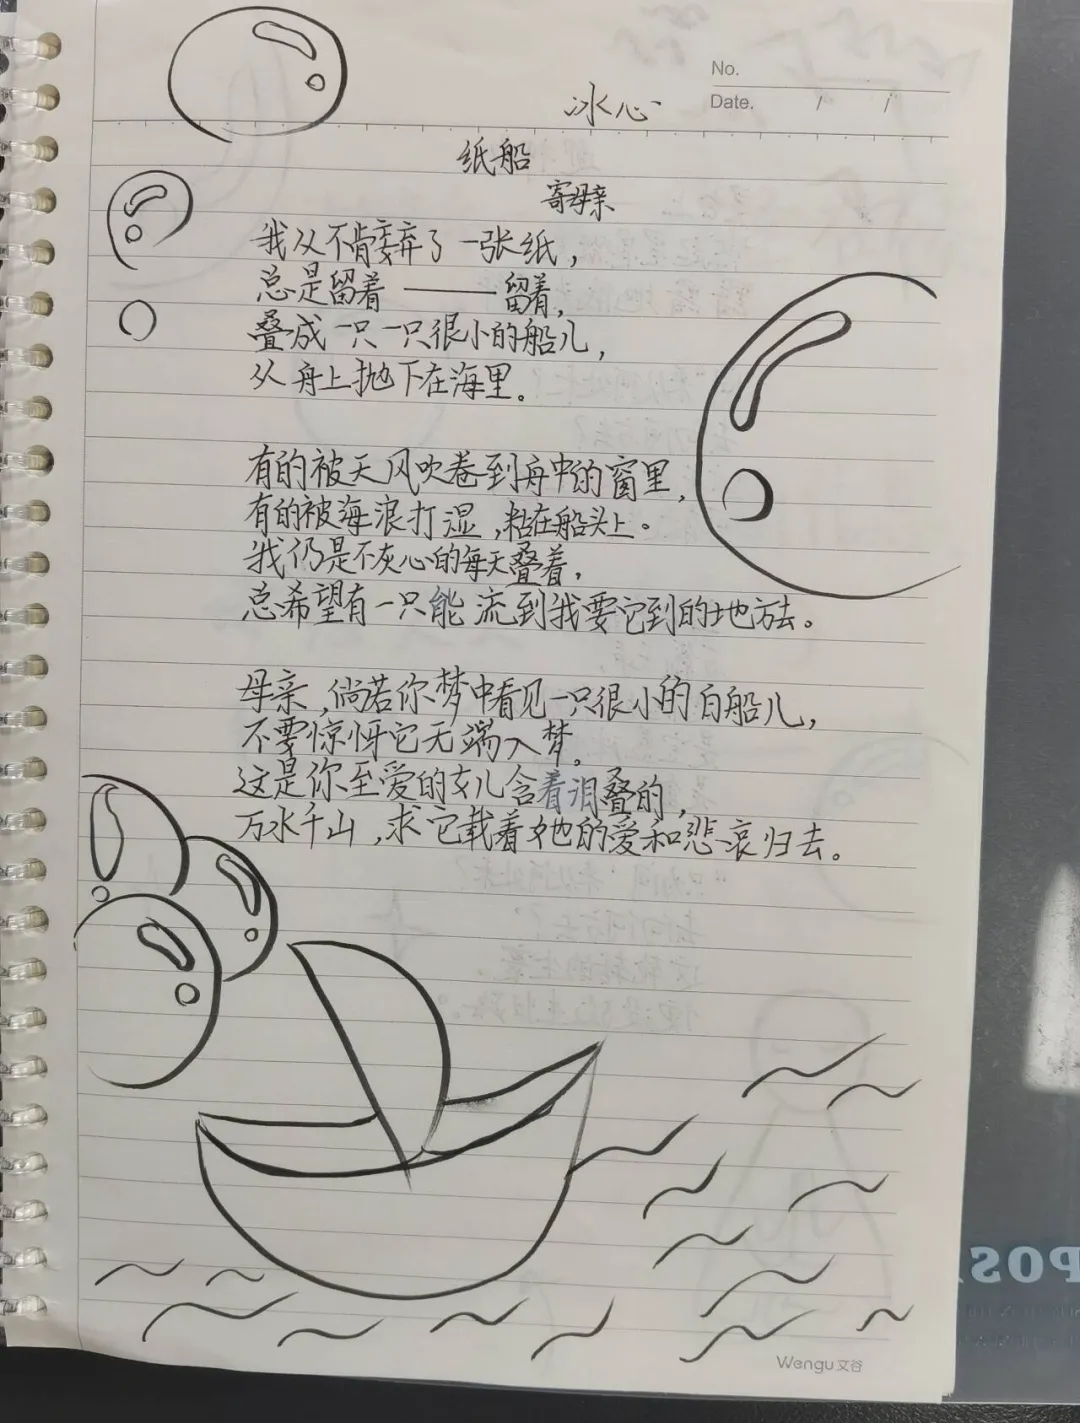 No.
Date. / /
冰心
纸船
寄母亲
我从不肯妄弃了一张纸，
总是留着——留着，
叠成一只一只很小的船儿，
从舟上抛下在海里。
有的被天风吹卷到舟中的窗里，
有的被海浪打湿，粘在船头上。
我仍是不灰心的每天叠着，
总希望有一只能流到我要它到的地方去。
母亲，倘若你梦中看见一只很小的白船儿，
不要惊讶它无端入梦。
这是你至爱的女儿含着泪叠的，
万水千山，求它载着她的爱和悲哀归去。
Wengu文谷